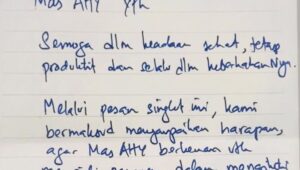 Mas AHY Yth
Semoga dlm keadaan sehat, tetap
produktif dan selalu dlm keberkahanNya.
Melalui pesan singkat ini, kami
bermaksud menyampaikan harapan,
agar Mas AHY berkenan utk
dalam